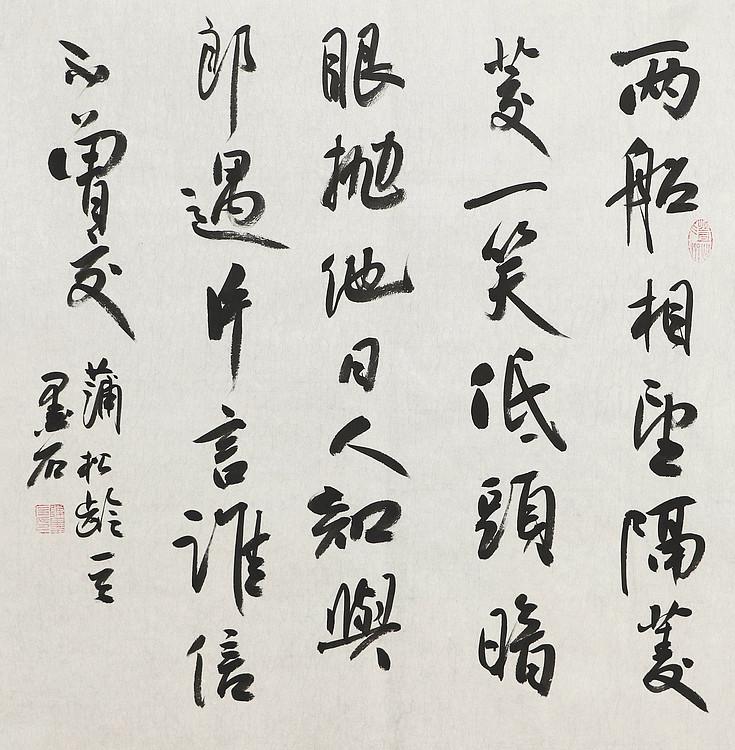 两船相望隔菱
茭一笑低頭暗
眼抛他日人知與
郎遇片言誰信
不曾交
蒲松龄
墨石